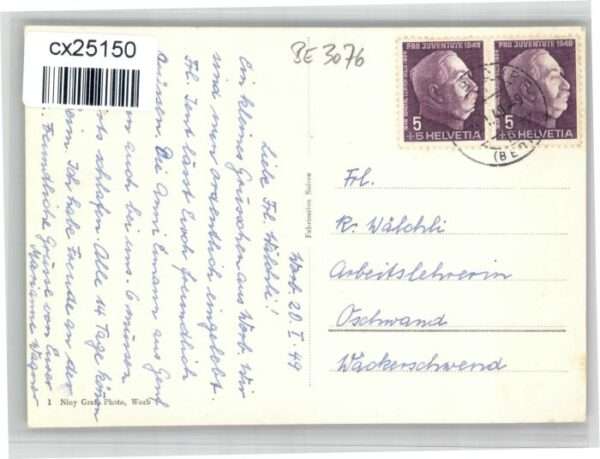 cx25150
BE 3076
PRO JUVENTUTE 1948
5
+5 HELVETIA
PRO JUVENTUTE 1948
5
+5 HELVETIA
(BE
Worb 20. I. 49
Liebe Frl. Wälchli!
Ein kleines Grüsschen aus Worb. Wir
sind nun ordentlich eingelebt.
Frl. Jent lässt Euch freundlich
grüssen. Die Anni Emann aus Genf
auch bei uns. 6 müssen
schlafen. Alle 14 Tage
Ich habe Freude an der
Freundliche Grüsse von Eurer
Marianne Wagner
Frl.
R. Wälchli
Arbeitslehrerin
Oschwand
Wäckerschwend
1 Niny Graf, Photo, Worb